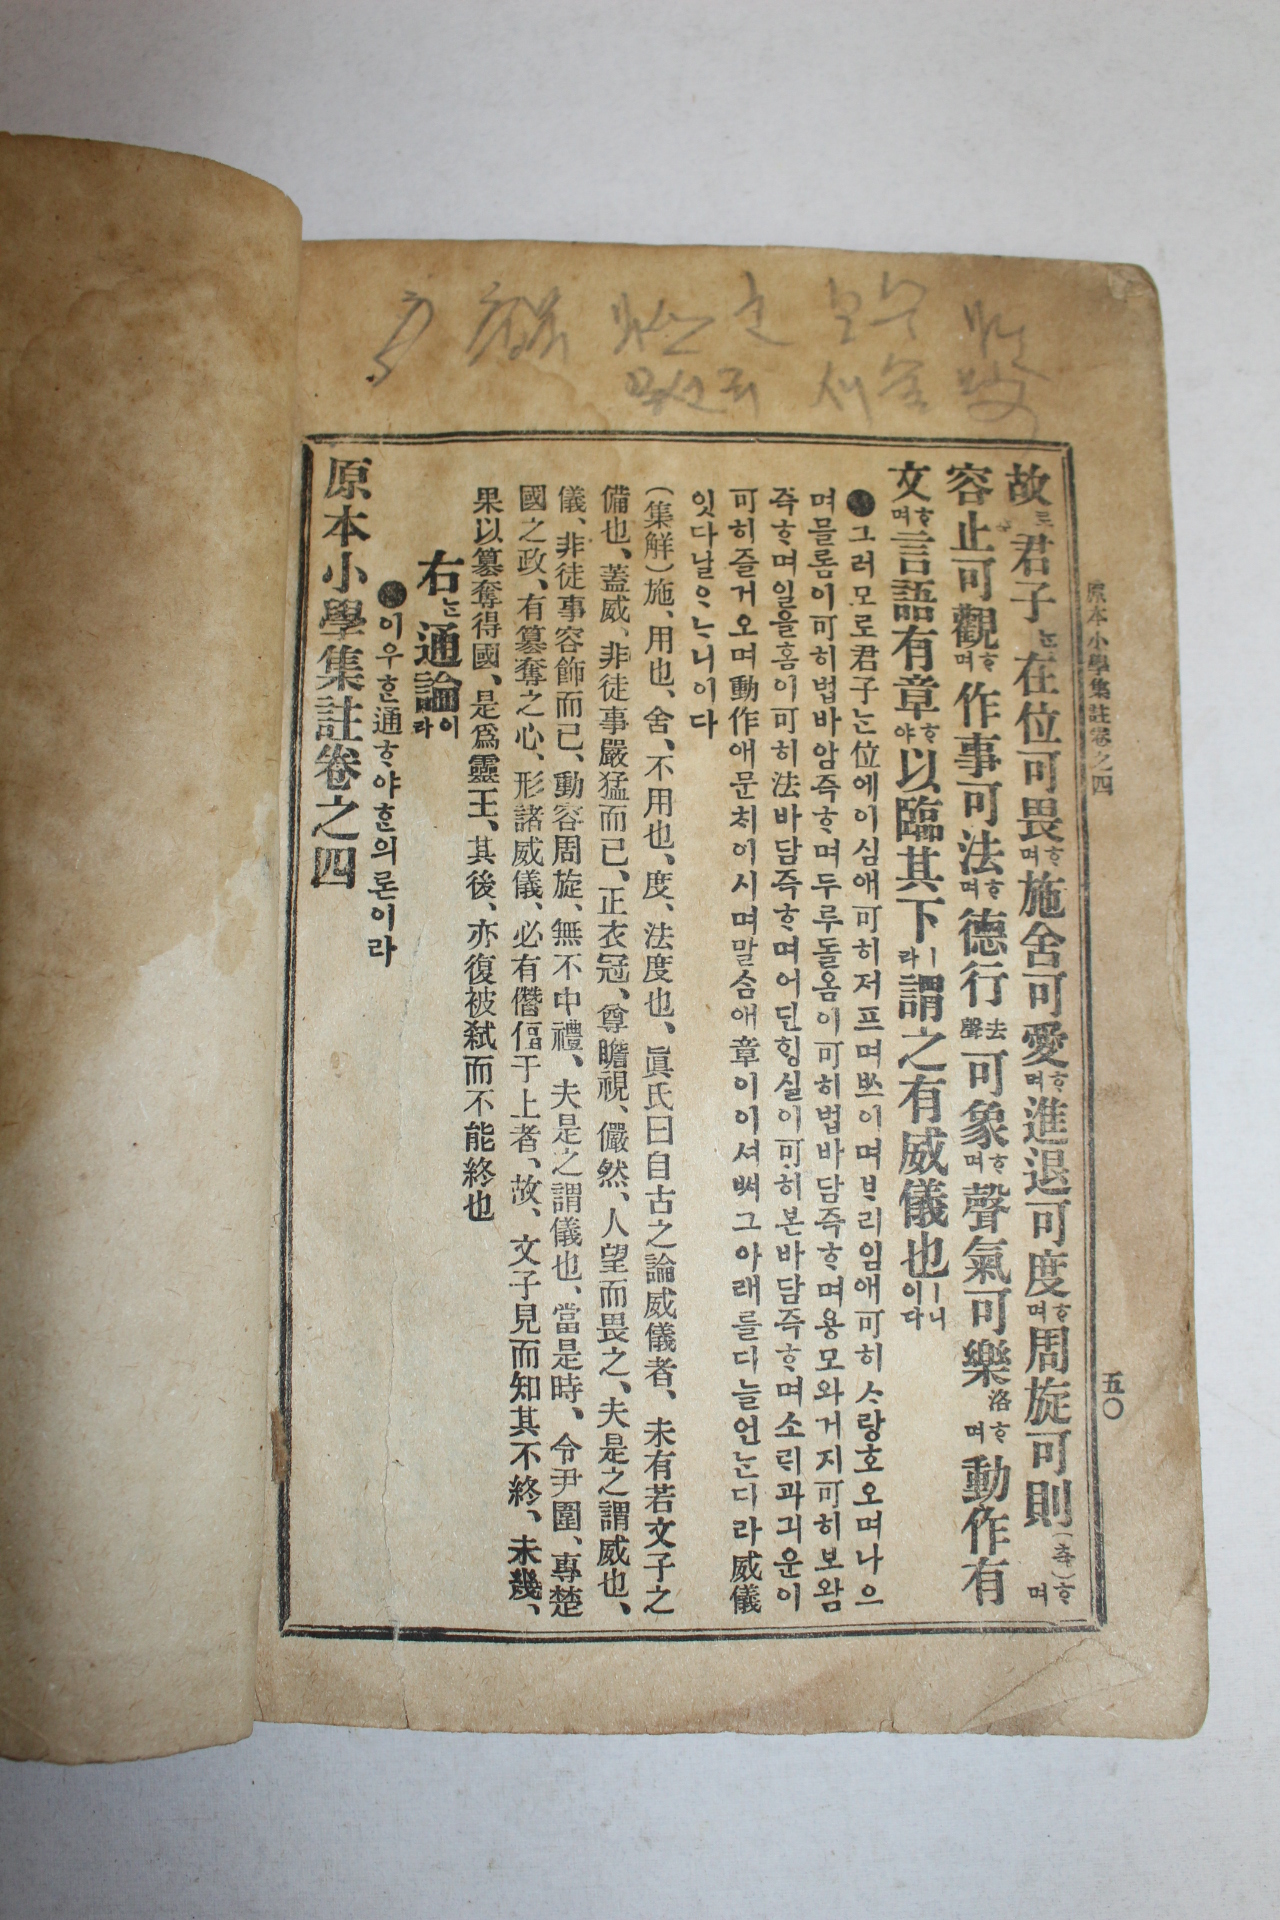 原本小學集註卷之四
五〇
故로君子ᄂᆞᆫ在位可畏ᄒᆞ며施舍可愛ᄒᆞ며進退可度ᄒᆞ며周旋可則(측)ᄒᆞ며
容止可觀ᄒᆞ며作事可法ᄒᆞ며德行去聲可象ᄒᆞ며聲氣可樂洛ᄒᆞ며動作有
文ᄒᆞ며言語有章ᄒᆞ야以臨其下ㅣ라謂之有威儀也ㅣ니이다
그러모로君子ᄂᆞᆫ位에이심애可히저프며ᄡᅳ이며ᄇᆞ리임애可히ᄉᆞ랑호오며나으
며믈롬이可히법바암즉ᄒᆞ며두루돌옴이可히법바담즉ᄒᆞ며용모와거지可히보왐
즉ᄒᆞ며일을홈이可히法바담즉ᄒᆞ며어딘ᄒᆡᆼ실이可히본바담즉ᄒᆞ며소ᄅᆡ과긔운이
可히즐거오며動作애문치이시며말ᄉᆞᆷ애章이이셔ᄡᅥ그아래를디늘언ᄂᆞᆫ디라威儀
잇다날ᄋᆞᄂᆞ니이다
(集解)施、用也、舍、不用也、度、法度也、眞氏曰自古之論威儀者、未有若文子之
備也、蓋威、非徒事嚴猛而已、正衣冠、尊瞻視、儼然、人望而畏之、夫是之謂威也、
儀、非徒事容飾而已、動容周旋、無不中禮、夫是之謂儀也、當是時、令尹圍、專楚
國之政、有簒奪之心、形諸威儀、必有僭偪于上者、故、文子見而知其不終、未幾、
果以簒奪得國、是爲靈王、其後、亦復被弑而不能終也
右ᄂᆞᆫ通論이라
이우흔通ᄒᆞ야ᄒᆞᆫ의론이라
原本小學集註卷之四